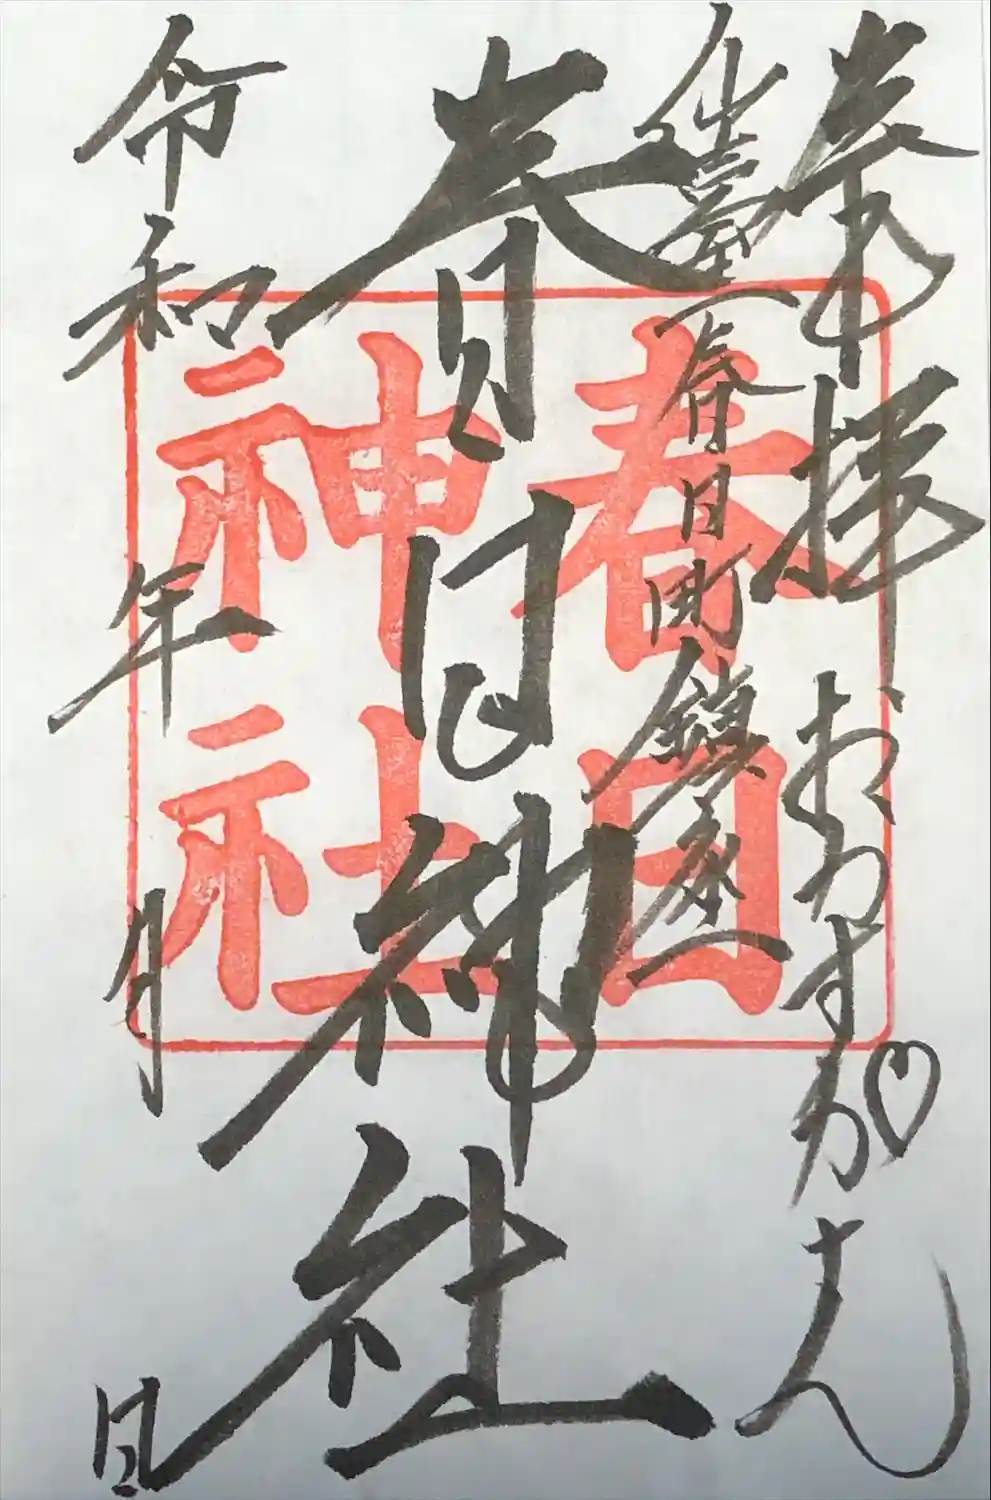 奉拝 おかすかさん♡
仙臺春日町鎮座
春日神社
令和 年 月 日
春日
神社